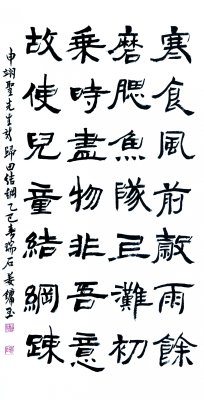 寒食風前穀雨餘
磨腮魚隊上灘初
乘時盡物非吾意
故使兒童結網踈
申翊聖先生詩歸田結網乙巳春瑞石姜繡玉